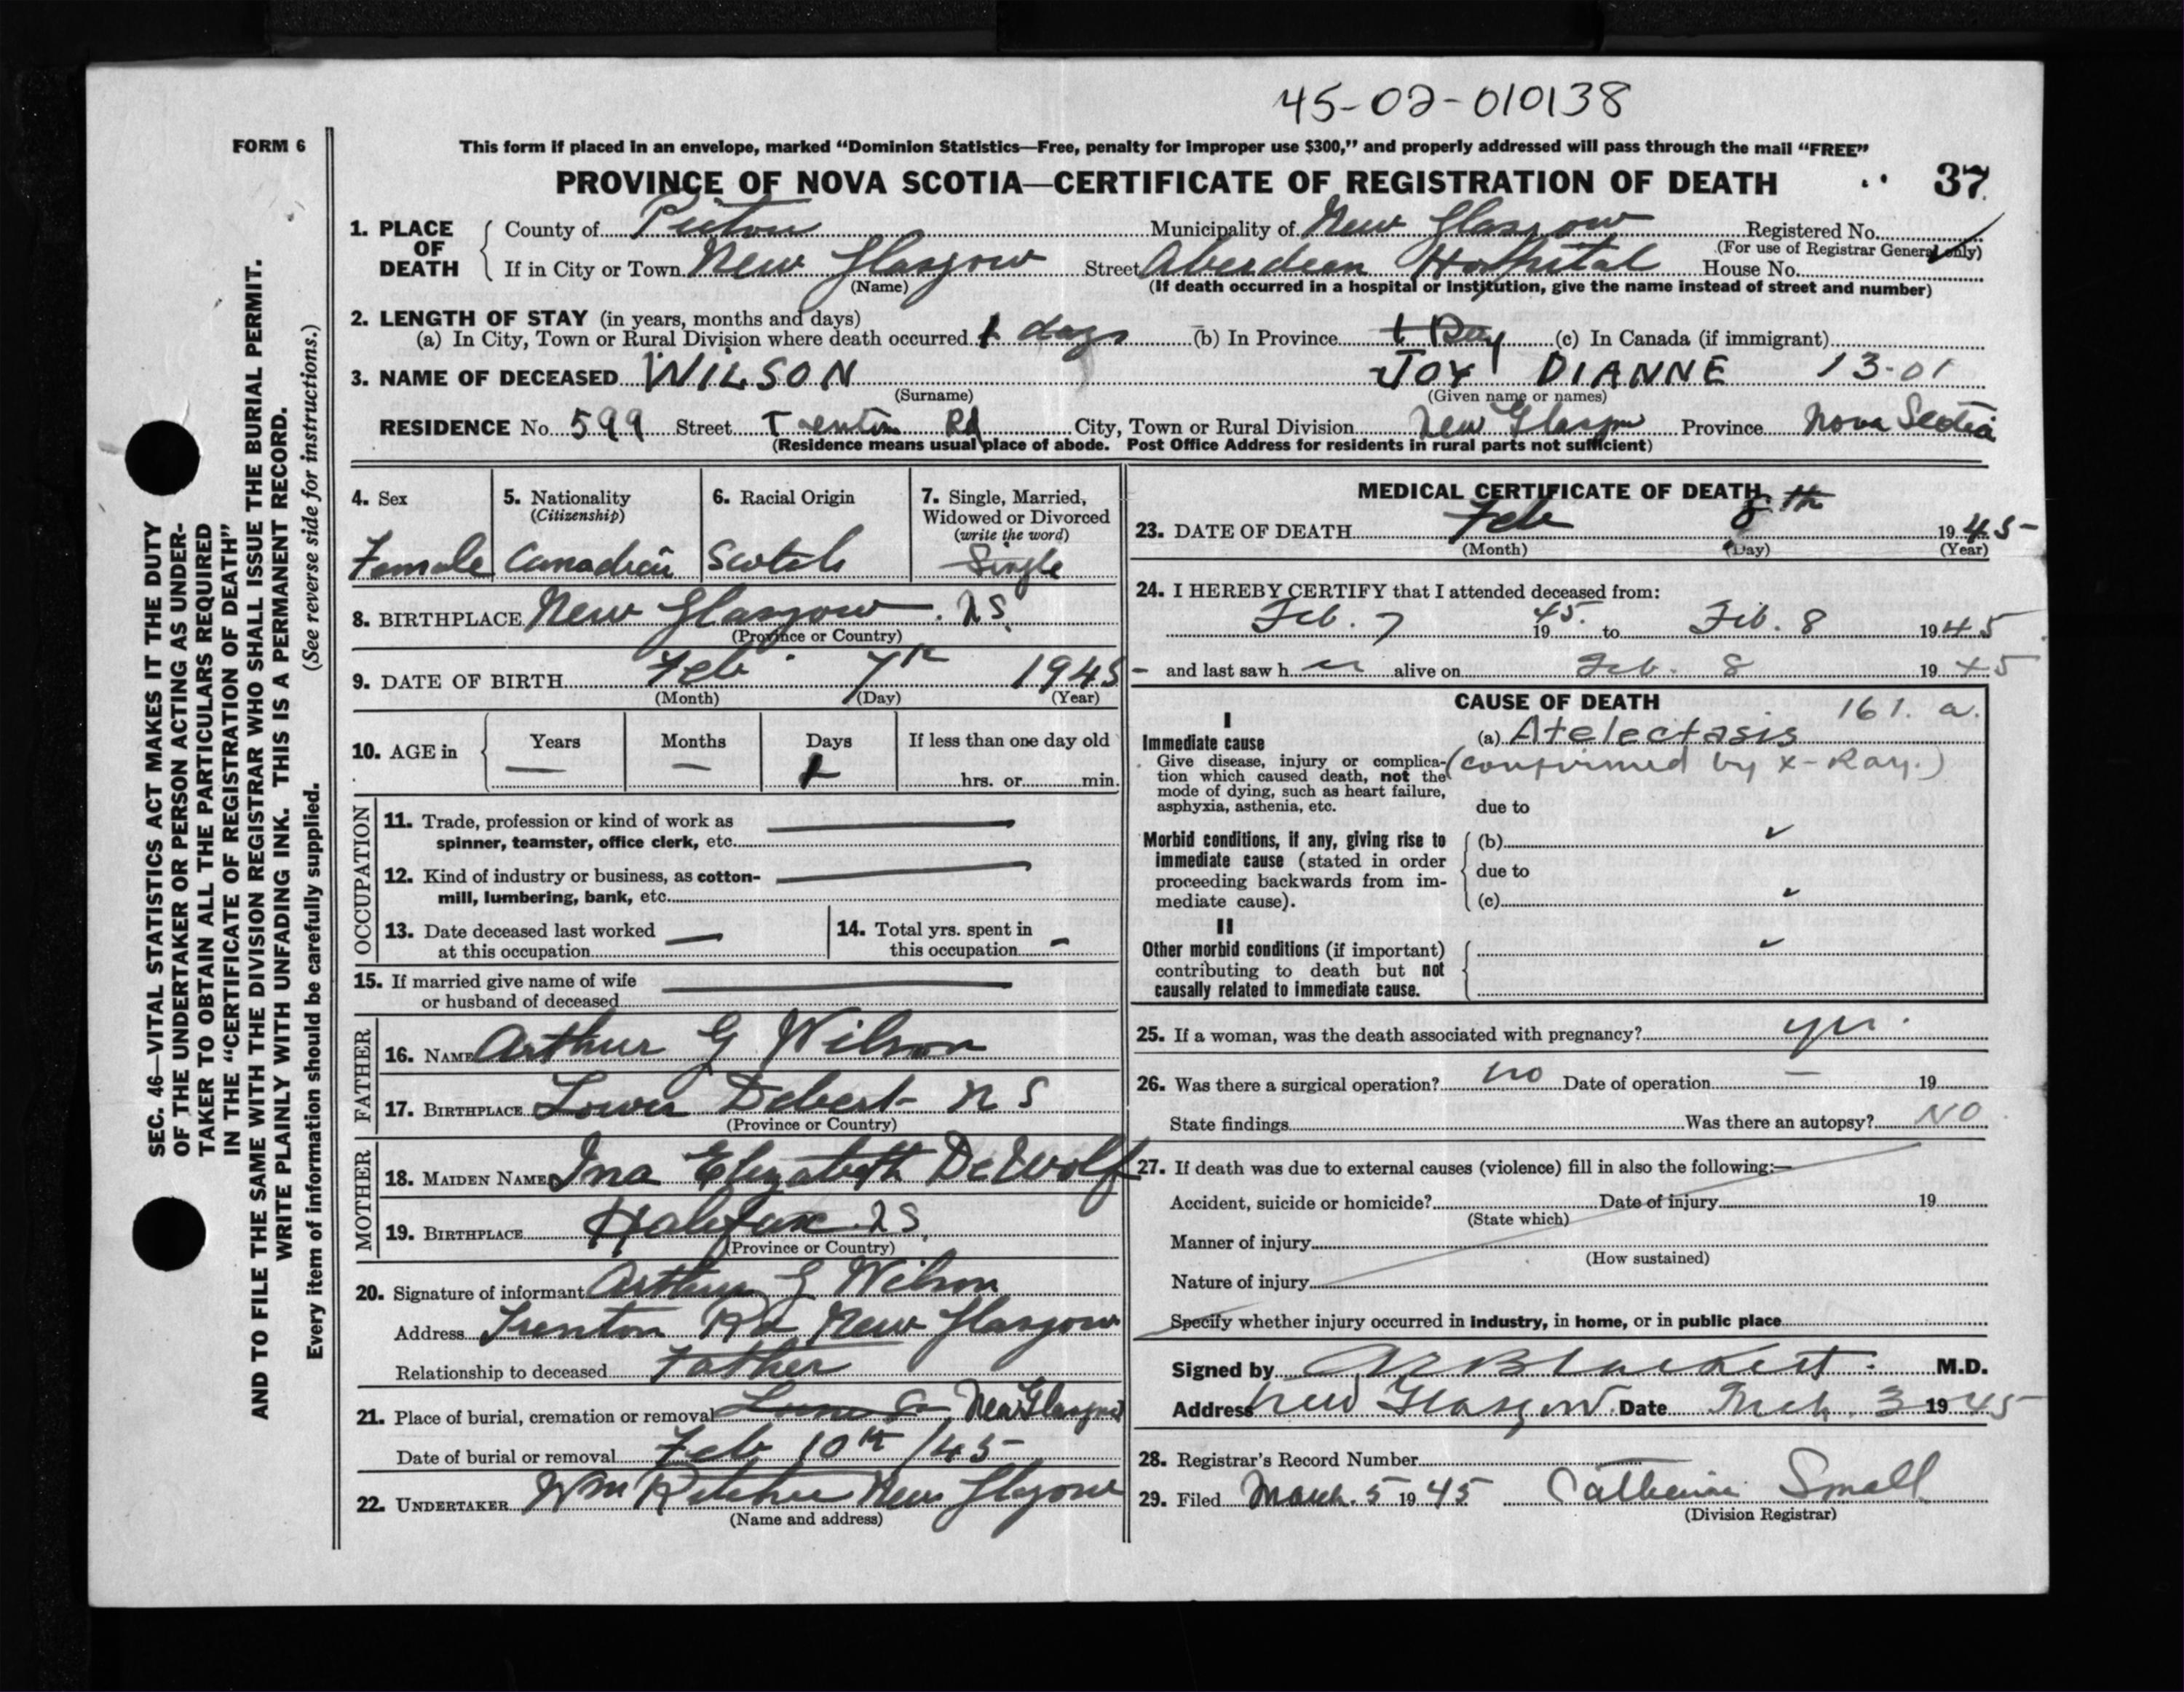 45-02-010138
FORM 6
This form if placed in an envelope, marked "Dominion Statistics—Free, penalty for improper use $300," and properly addressed will pass through the mail "FREE"
PROVINCE OF NOVA SCOTIA—CERTIFICATE OF REGISTRATION OF DEATH 37
1. PLACE OF DEATH County of Pictou Municipality of New Glasgow Registered No.
(For use of Registrar General only)
If in City or Town New Glasgow Street Aberdeen Hospital House No.
(Name) (If death occurred in a hospital or institution, give the name instead of street and number)
2. LENGTH OF STAY (in years, months and days)
(a) In City, Town or Rural Division where death occurred 1 days (b) In Province 1 Day (c) In Canada (if immigrant)
3. NAME OF DECEASED WILSON JOY DIANNE 13-01
(Surname) (Given name or names)
RESIDENCE No. 599 Street Trenton Rd City, Town or Rural Division New Glasgow Province Nova Scotia
(Residence means usual place of abode. Post Office Address for residents in rural parts not sufficient)
SEC. 46—VITAL STATISTICS ACT MAKES IT THE DUTY
OF THE UNDERTAKER OR PERSON ACTING AS UNDER-
TAKER TO OBTAIN ALL THE PARTICULARS REQUIRED
IN THE "CERTIFICATE OF REGISTRATION OF DEATH"
AND TO FILE THE SAME WITH THE DIVISION REGISTRAR WHO SHALL ISSUE THE BURIAL PERMIT.
WRITE PLAINLY WITH UNFADING INK. THIS IS A PERMANENT RECORD.
Every item of information should be carefully supplied. (See reverse side for instructions.)
4. Sex 5. Nationality 6. Racial Origin 7. Single, Married,
(Citizenship) Widowed or Divorced
(write the word)
Female Canadian Scotch Single
8. BIRTHPLACE New Glasgow. NS.
(Province or Country)
9. DATE OF BIRTH Feb 7th 1945
(Month) (Day) (Year)
10. AGE in Years Months Days If less than one day old
— — 1 hrs. or min.
OCCUPATION
11. Trade, profession or kind of work as
spinner, teamster, office clerk, etc.
12. Kind of industry or business, as cotton-
mill, lumbering, bank, etc.
13. Date deceased last worked — 14. Total yrs. spent in
at this occupation this occupation —
15. If married give name of wife
or husband of deceased
FATHER
16. NAME Arthur G Wilson
17. BIRTHPLACE Lower Debert NS
(Province or Country)
MOTHER
18. MAIDEN NAME Ina Elizabeth DeWolf
19. BIRTHPLACE Halifax NS.
(Province or Country)
20. Signature of informant Arthur G Wilson
Address Trenton Rd New Glasgow
Relationship to deceased Father
21. Place of burial, cremation or removal New Glasgow
Date of burial or removal Feb 10th/45
22. UNDERTAKER Wm Ritchie New Glasgow
(Name and address)
MEDICAL CERTIFICATE OF DEATH
23. DATE OF DEATH Feb 8th 1945
(Month) (Day) (Year)
24. I HEREBY CERTIFY that I attended deceased from:
Feb. 7 1945. to Feb. 8 1945
and last saw her alive on Feb. 8 1945
CAUSE OF DEATH 161. a.
I
Immediate cause (a) Atelectasis
Give disease, injury or complica- (confirmed by x-Ray.)
tion which caused death, not the
mode of dying, such as heart failure,
asphyxia, asthenia, etc. due to
Morbid conditions, if any, giving rise to (b)
immediate cause (stated in order
proceeding backwards from im- due to
mediate cause). (c)
II
Other morbid conditions (if important)
contributing to death but not
causally related to immediate cause.
25. If a woman, was the death associated with pregnancy? yes.
26. Was there a surgical operation? no Date of operation — 19
State findings Was there an autopsy? NO
27. If death was due to external causes (violence) fill in also the following:—
Accident, suicide or homicide? Date of injury 19
(State which)
Manner of injury
(How sustained)
Nature of injury
Specify whether injury occurred in industry, in home, or in public place
Signed by Blackett. M.D.
Address New Glasgow. Date Mch. 3 1945
28. Registrar's Record Number
29. Filed March. 5 1945 Catherine Small
(Division Registrar)